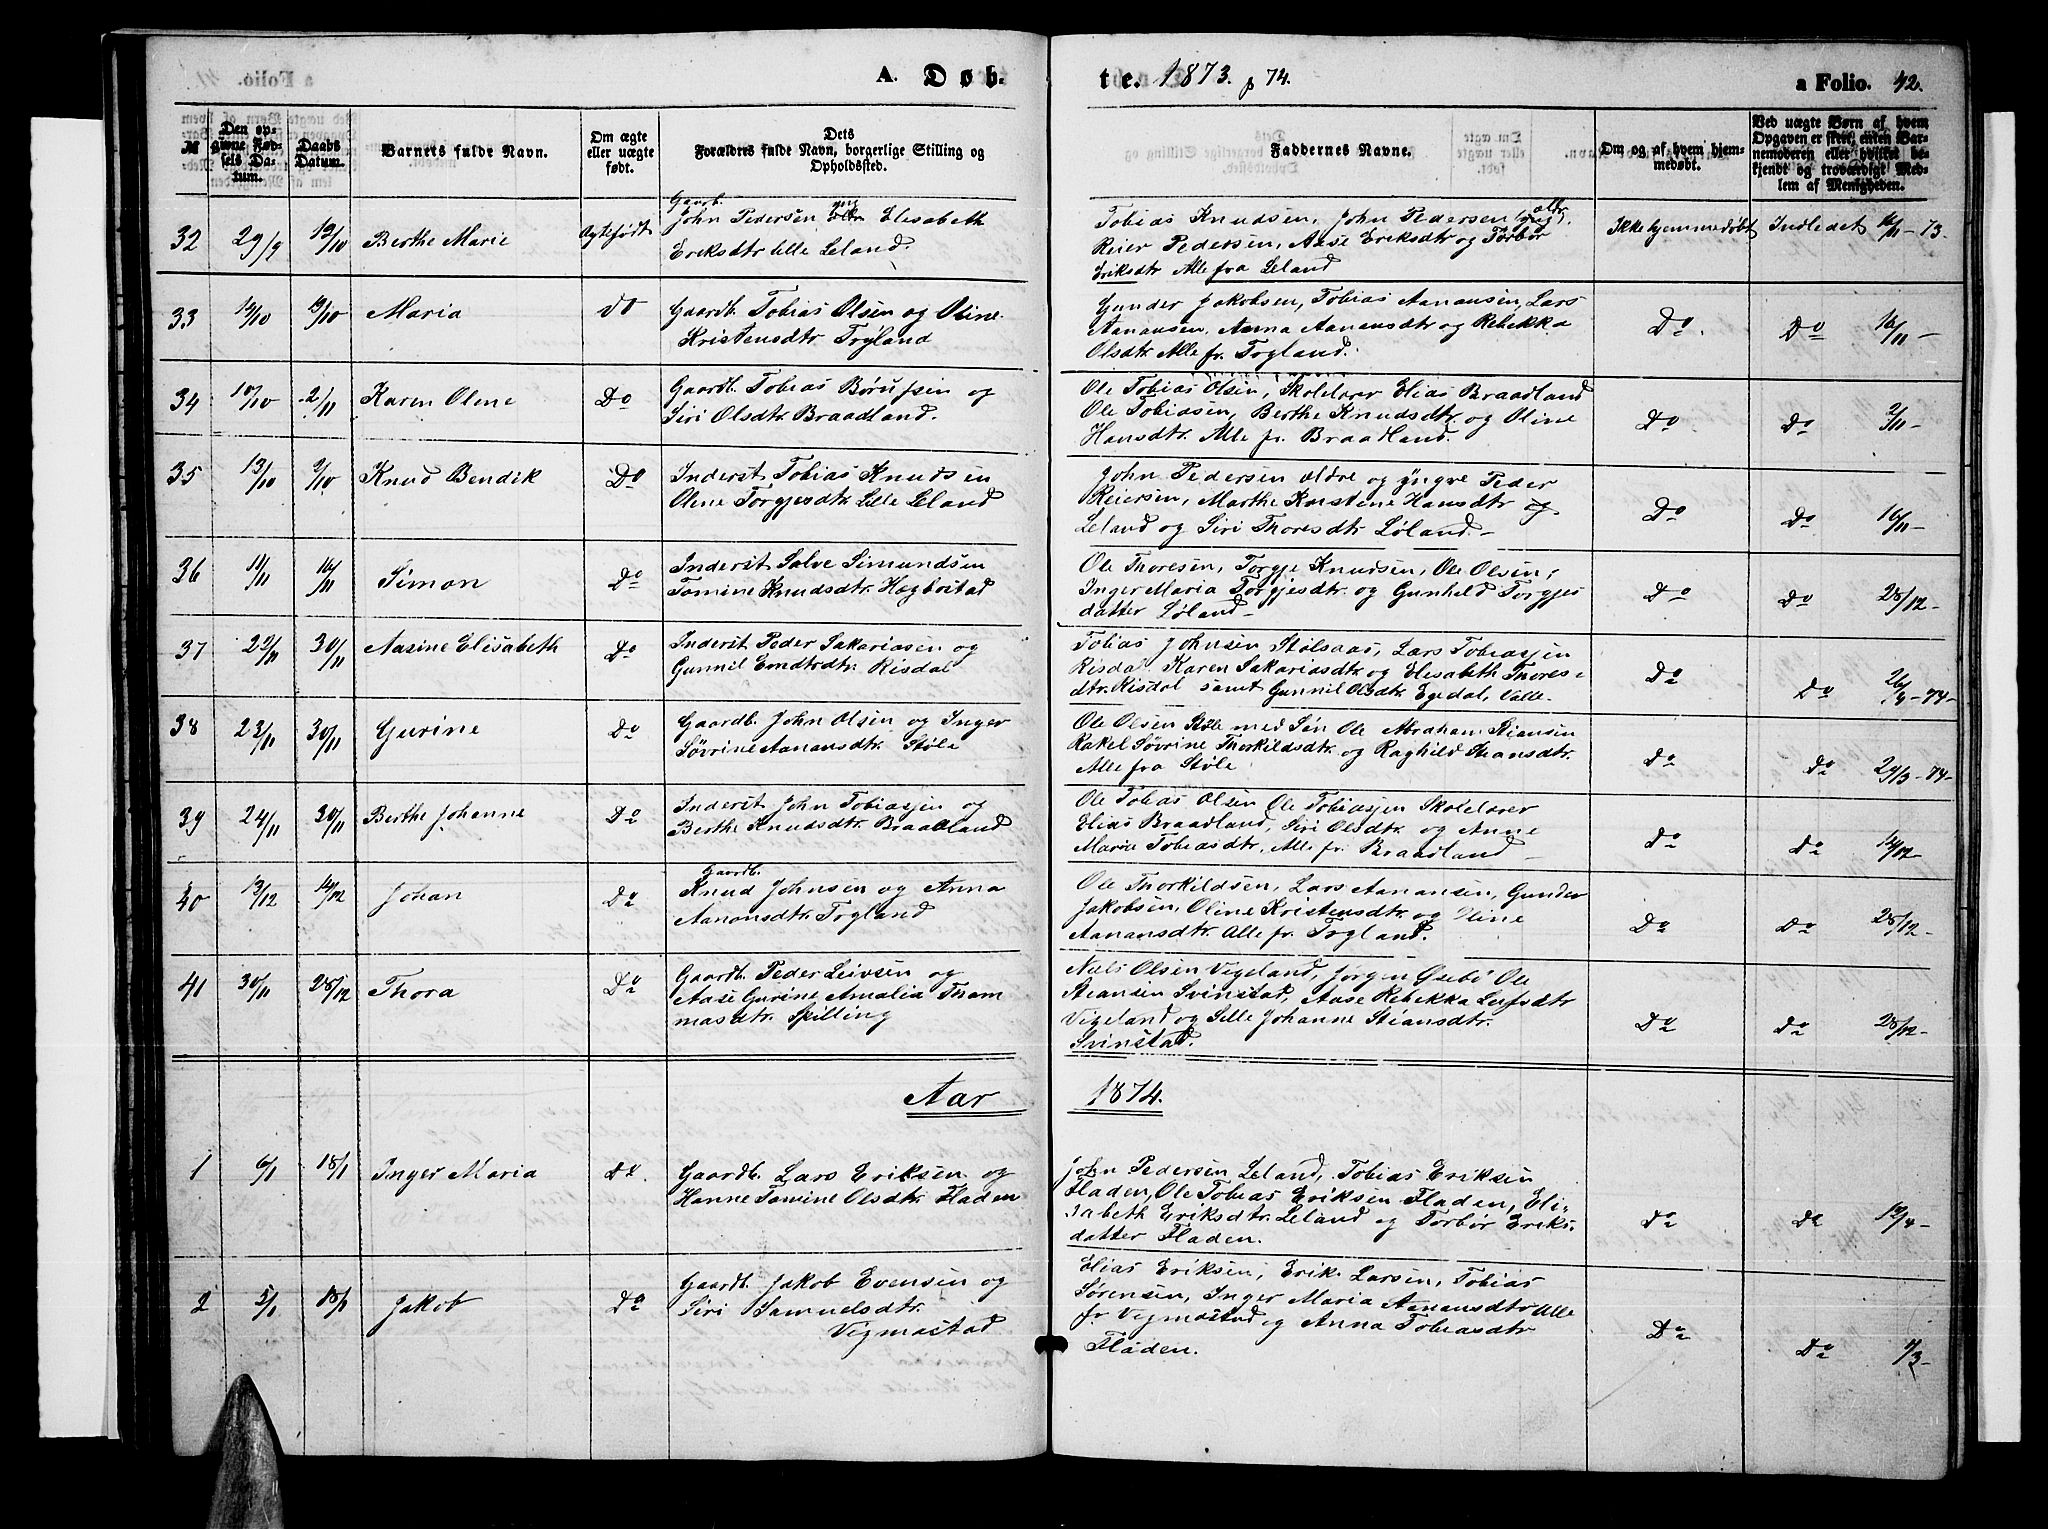 A. Døb-
te. 1873. p 74.
a Folio. 42.
№
Den op-
givne Fød-
sels Da-
tum.
Daabs
Datum.
Barnets fulde Navn.
Om ægte
eller uægte
født.
Dets
Forældres fulde Navn, borgerlige Stilling og
Opholdssted.
Faddernes Navne.
Om og af hvem hjem-
medøbt.
Ved uægte Børn af hvem
Opgaven er skeet, enten Bar-
nemoderen eller hvilket be-
kjendt og troværdigt Med-
lem af Menigheden.
32 29/9 19/10 Berthe Marie Ægtefødt
Gaardb.
John Pedersen yng Elisabeth
Eriksdtr Lille Leland.
Tobias Knudsen, John Pedersen (ældr.
Reier Pedersen, Aase Eriksdtr og Torbor
Eriksdtr Alle fra Leland
Ikke hjemmedøbt Indledet 16/11-73.
33 13/10 19/10 Maria Do
Gaardb. Tobias Olsen og Oline
Kristensdtr Tøgland
Gunder Jakobsen, Tobias Aanansen, Lars
Aanansen, Anna Aanansdtr og Rebekka
Olsdtr Alle fr. Togland.
Do. Do 16/11-
34 10/10 2/11 Karen Olene Do
Gaardb. Tobias Børufsen og
Siri Olsdtr Braadland.
Ole Tobias Olsen, Skolelærer Elias Braadland
Ole Tobiasen, Berthe Knudsdtr. og Oline
Hansdtr. Alle fr. Braadland.
Do Do 2/11-
35 13/10 Knud Bendik Do
Inderst Tobias Knudsen
Olene Torgjesdtr Lille Leland
John Pedersen ældre og yngre Peder
Reiersen, Marthe Kristene Hansdtr og
Leland og Siri Thoresdtr Løland.-
Do Do 16/11-
36 11/11 16/11 Simon Do
Inderst Salve Simundsen
Tomine Knudsdtr. Hægbostad
Ole Thoresen, Torgje Knudsen, Ole Olsen,
Inger Maria Torgjesdtr. og Gunhild Torgjes
datter Løland-
Do Do 28/12-
37 22/11 30/11 Aasine Elisabeth Do
Inderst Peder Sakariasen og
Gunnil Emdtrdtr. Risdal
Tobias Johnsen Stølsaas, Lars Tobiassen
Risdal Karen Sakariasdtr og Elisabeth Thores-
dtr. Risdal samt Gunnil Olsdtr Egedal, Valle-
Do Do 26/4-74-
38 23/11 30/11 Gurine Do
Gaardb. John Olsen og Inger
Søvrine Aanansdtr. Støle
Ole Olsen Støle med Søn Ole Abraham Stiansen
Rakel Søvrine Thorkildsdtr. og Raghild Steansdtr.
Alle fra Støle
Do Do 29/3-74-
39 24/11 30/11 Berthe Johanne Do
Inderst John Tobiassen og
Berthe Knudsdtr. Braadland
Ole Tobias Olsen Ole Tobiassen Skolelærer
Elias Braadland, Siri Olsdtr. og Anne
Marie Tobiasdtr, Alle fr. Braadland-
Do Do 14/12-
40 13/12 14/12 Johan Do
Gaardb.
Knud Johnsen og Anna
Aanansdtr. Togland
Ole Thorkildsen, Lars Aanansen, Gunder
Jakobsen, Oline Kristensdtr. og Oline
Aanansdtr. Alle fr. Togland.
Do Do 28/12-
41 30/11 28/12 Thora Do
Gaardb. Peder Leivsen og
Aase Gurine Amalia Thom
masdtr. Spilling
Niels Olsen Vigeland, Jørgen Øsebø Ole
Steansen Svinstad, Aase Rebekka Leifsdtr
Vigeland og Sille Johanne Stiansdtr.
Svinstad.
Do Do 28/12-
Aar 1874.
1 6/1 18/1 Inger Maria Do.
Gaardb. Lars Eriksen og
Hanne Tomine Olsdtr. Fladen
John Pedersen Leland, Tobias Eriksen
Fladen, Ole Tobias Eriksen Fladen, Eli-
sabeth Eriksdtr. Leland og Torbør Eriks-
datter Fladen.
Do Do 12/4-
2 5/1 18/1 Jakob Do
Gaardb. Jakob Evensen og
Siri Samuelsdtr.
Vigmostad
Elias Eriksen, Erik Larsen, Tobias
Sørensen, Inger Maria Aanansdtr Alle
fr. Vigmostad og Anna Tobiasdtr
Fladen.
Do Do